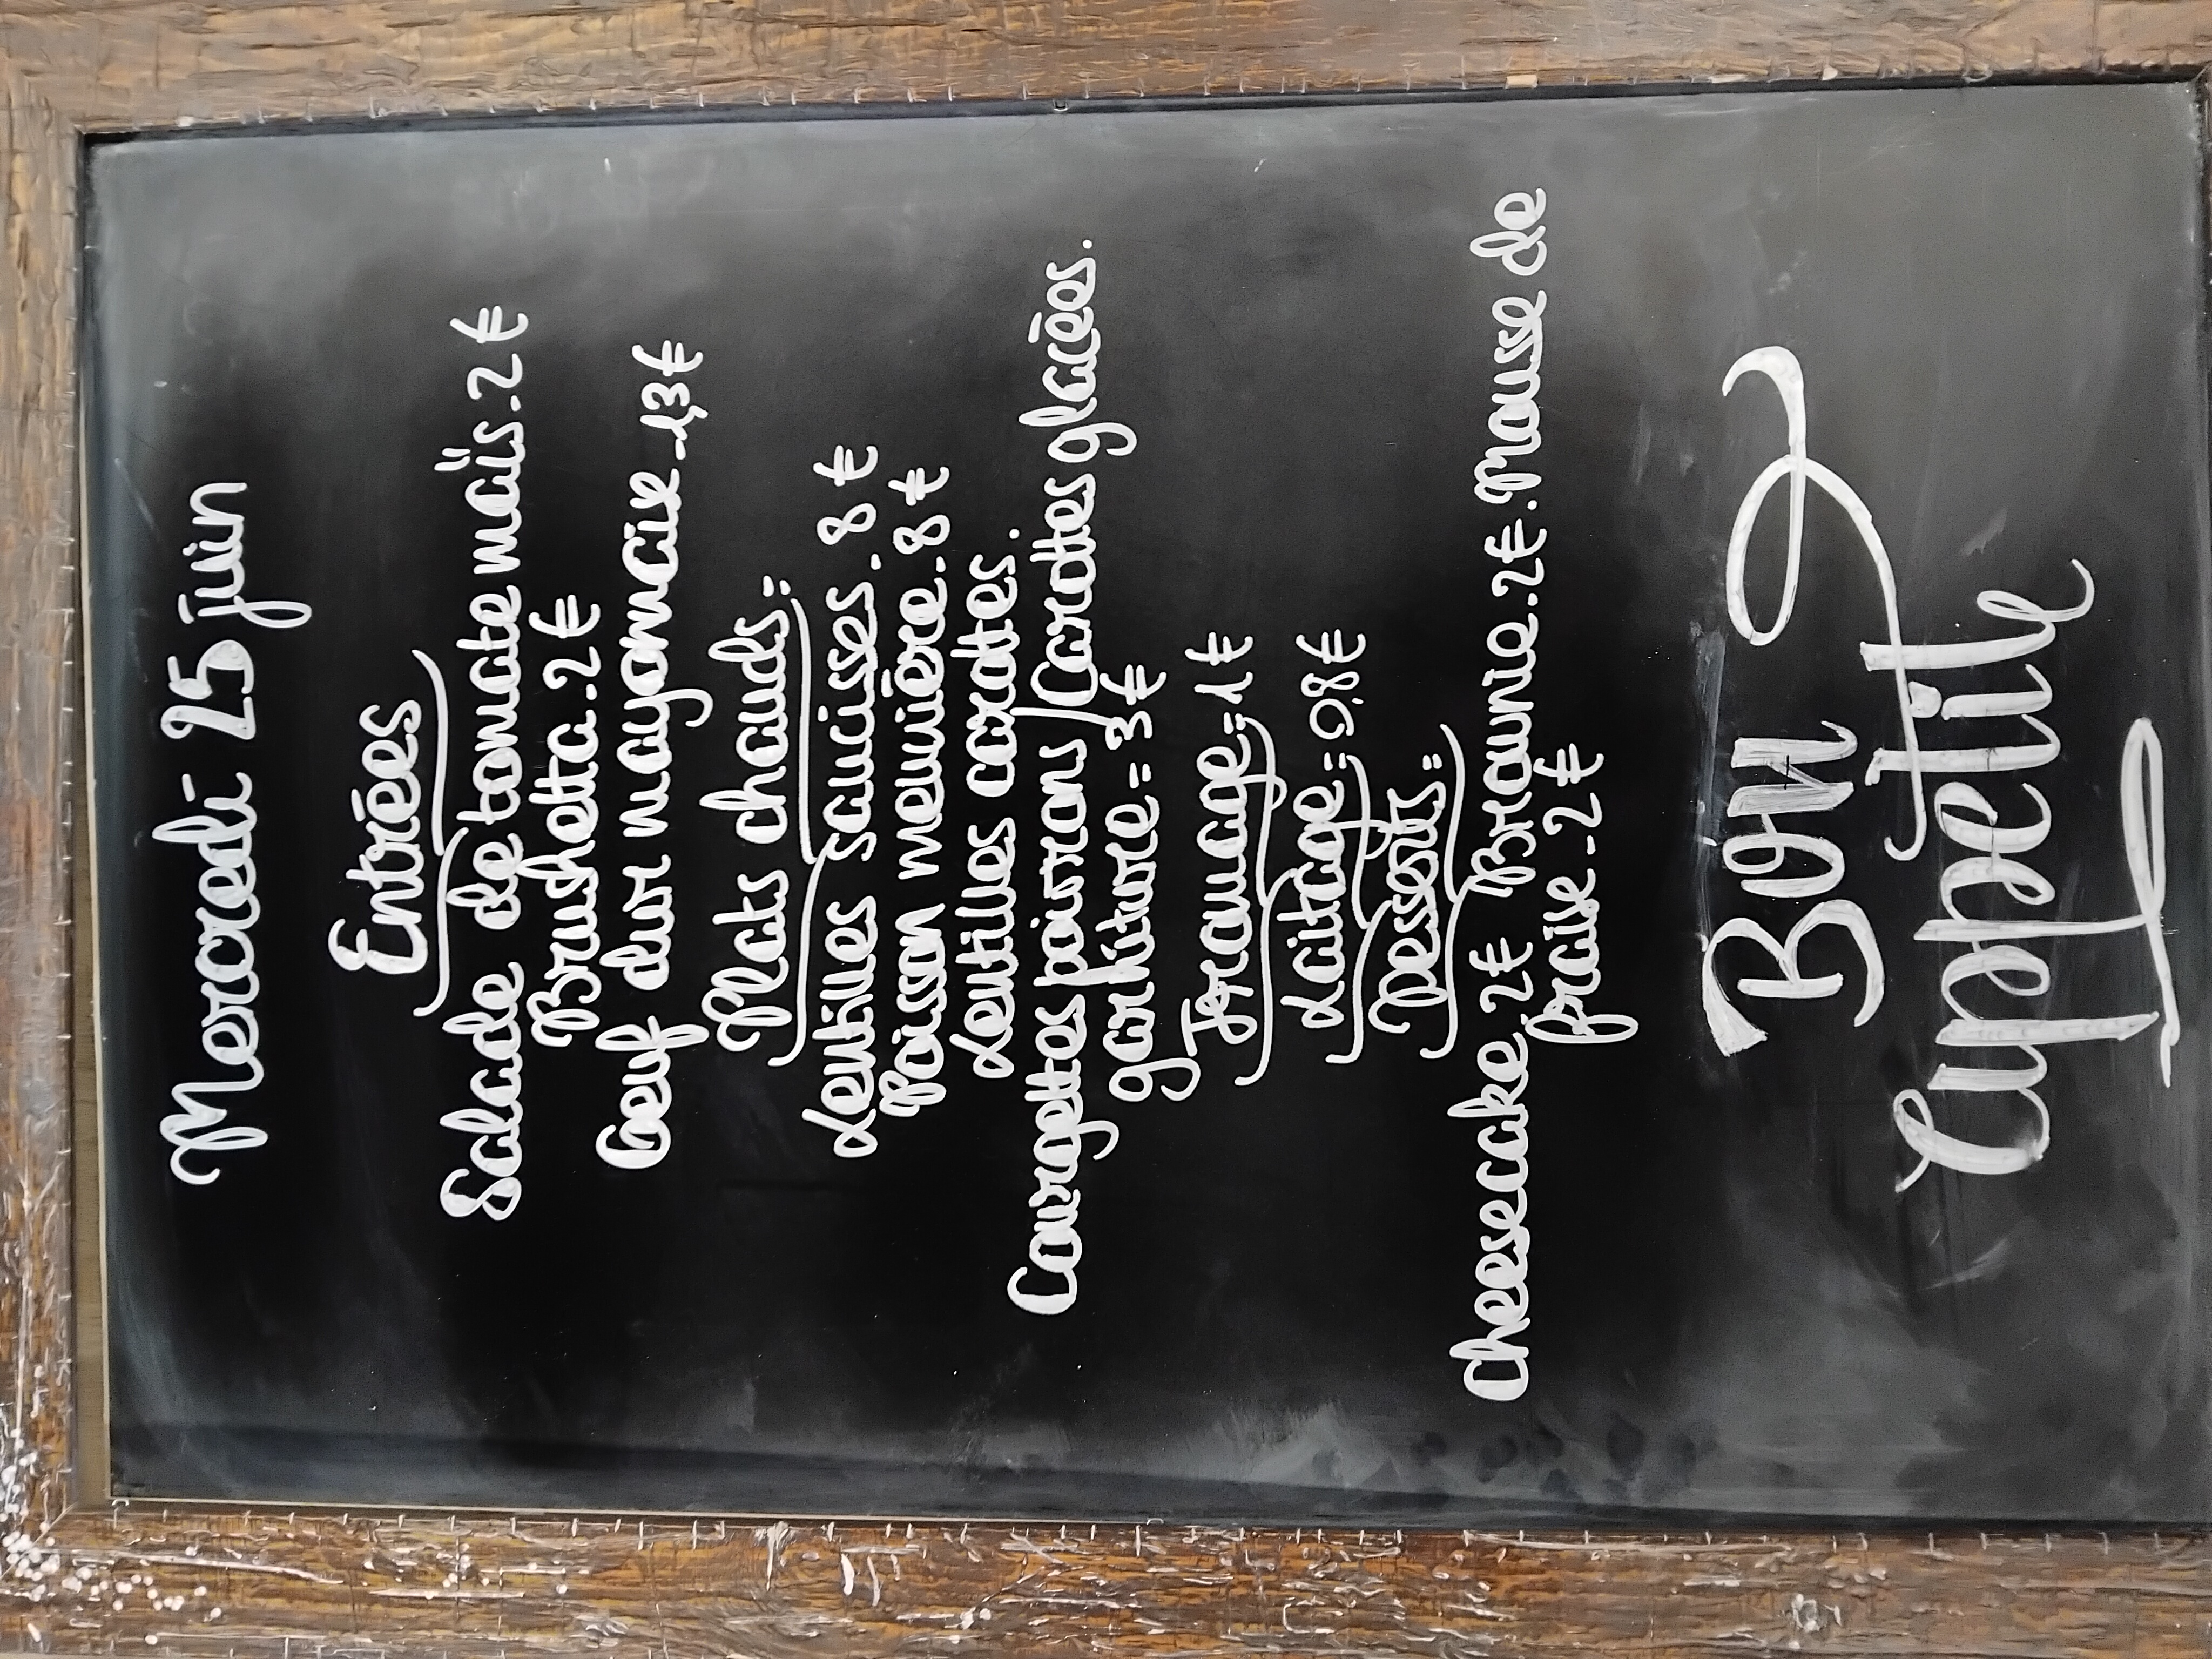 Mercredi 25 juin
Entrées
Salade de tomate maïs.2€
Brushetta.2€
Oeuf dur mayonnaise-1,3€
Plats chauds:
Lentilles saucisses.8€
Poisson meunière.8€
Lentilles carottes.
Courgettes poivrons/Carottes glacées.
garniture=3€
Fromage:1€
Laitage:0,8€
Desserts:
Cheesecake.2€ Brownie.2€.Mousse de
fraise-2€
Bon
appétit